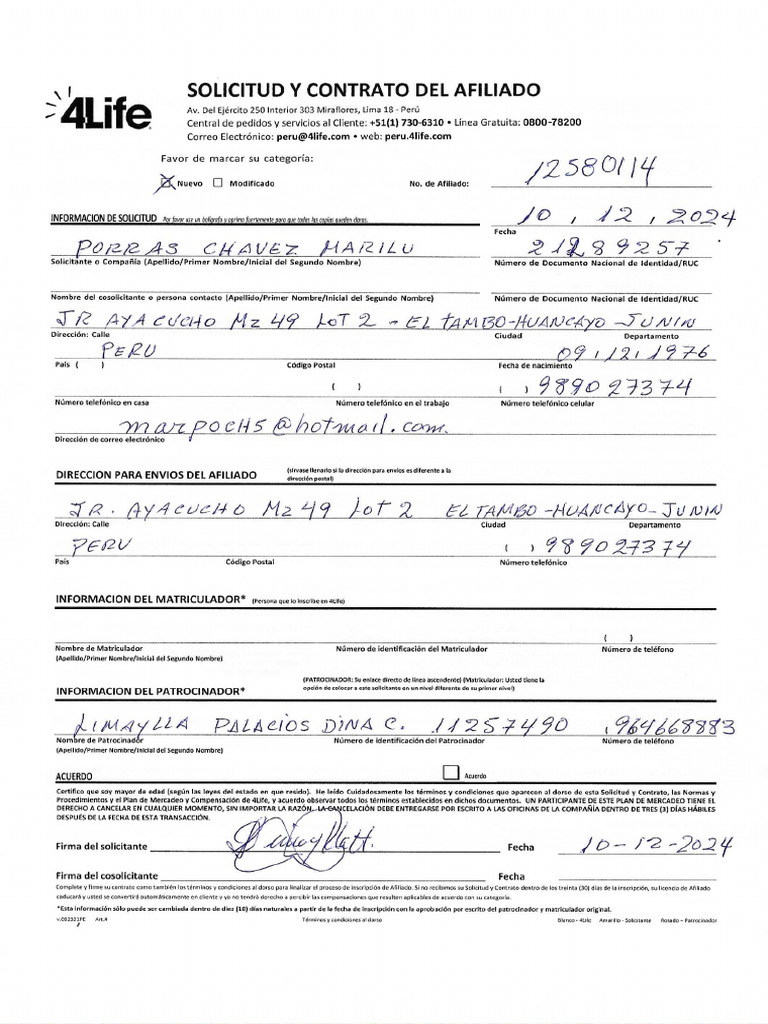 4Life
SOLICITUD Y CONTRATO DEL AFILIADO
Av. Del Ejército 250 Interior 303 Miraflores, Lima 18 - Perú
Central de pedidos y servicios al Cliente: +51(1) 730-6310 • Línea Gratuita: 0800-78200
Correo Electrónico: peru@4life.com • web: peru.4life.com
Favor de marcar su categoría:
Nuevo Modificado No. de Afiliado: 12580114
INFORMACION DE SOLICITUD Por favor use un bolígrafo y oprima fuertemente para que todas las copias queden claras.
10, 12, 2024
Fecha
PORRAS CHAVEZ MARILU 21289257
Solicitante o Compañía (Apellido/Primer Nombre/Inicial del Segundo Nombre) Número de Documento Nacional de Identidad/RUC
Nombre del cosolicitante o persona contacto (Apellido/Primer Nombre/Inicial del Segundo Nombre) Número de Documento Nacional de Identidad/RUC
JR AYACUCHO Mz 49 LOT 2 - EL TAMBO-HUANCAYO-JUNIN
Dirección: Calle Ciudad Departamento
PERU 09.12.1976
País ( ) Código Postal Fecha de nacimiento
( ) ( ) 989027374
Número telefónico en casa Número telefónico en el trabajo Número telefónico celular
marpoch5@hotmail.com.
Dirección de correo electrónico
DIRECCION PARA ENVIOS DEL AFILIADO (sírvase llenarlo si la dirección para envíos es diferente a la
dirección postal)
JR. AYACUCHO Mz 49 Lot 2 EL TAMBO-HUANCAYO-JUNIN
Dirección: Calle Ciudad Departamento
PERU ( ) 989027374
País Código Postal Número telefónico
INFORMACION DEL MATRICULADOR* (Persona que lo inscribe en 4Life)
( )
Nombre de Matriculador Número de identificación del Matriculador Número de teléfono
(Apellido/Primer Nombre/Inicial del Segundo Nombre)
(PATROCINADOR: Su enlace directo de línea ascendente) (Matriculador: Usted tiene la
INFORMACION DEL PATROCINADOR* opción de colocar a este solicitante en un nivel diferente de su primer nivel)
LIMAYLLA PALACIOS DINA C. 11257490 964668883
Nombre de Patrocinador Número de identificación del Patrocinador Número de teléfono
(Apellido/Primer Nombre/Inicial del Segundo Nombre)
ACUERDO Acuerdo
Certifico que soy mayor de edad (según las leyes del estado en que resido). He leído Cuidadosamente los términos y condiciones que aparecen al dorso de esta Solicitud y Contrato, las Normas y
Procedimientos y el Plan de Mercadeo y Compensación de 4Life, y acuerdo observar todos los términos establecidos en dichos documentos. UN PARTICIPANTE DE ESTE PLAN DE MERCADEO TIENE EL
DERECHO A CANCELAR EN CUALQUIER MOMENTO, SIN IMPORTAR LA RAZÓN. LA CANCELACIÓN DEBE ENTREGARSE POR ESCRITO A LAS OFICINAS DE LA COMPAÑÍA DENTRO DE TRES (3) DÍAS HÁBILES
DESPUÉS DE LA FECHA DE ESTA TRANSACCIÓN.
Firma del solicitante Fecha 10-12-2024
Firma del cosolicitante Fecha
Complete y firme su contrato como también los términos y condiciones al dorso para finalizar el proceso de inscripción de Afiliado. Si no recibimos su Solicitud y Contrato dentro de los treinta (30) días de la inscripción, su licencia de Afiliado
caducará y usted se convertirá automáticamente en cliente y ya no tendrá derecho a percibir las compensaciones que resulten aplicables de acuerdo con su categoría.
*Esta información sólo puede ser cambiada dentro de diez (10) días naturales a partir de la fecha de inscripción con la aprobación por escrito del patrocinador y matriculador original.
v.092321PE Art.# Términos y condiciones al dorso Blanco - 4Life Amarillo - Solicitante Rosado - Patrocinador